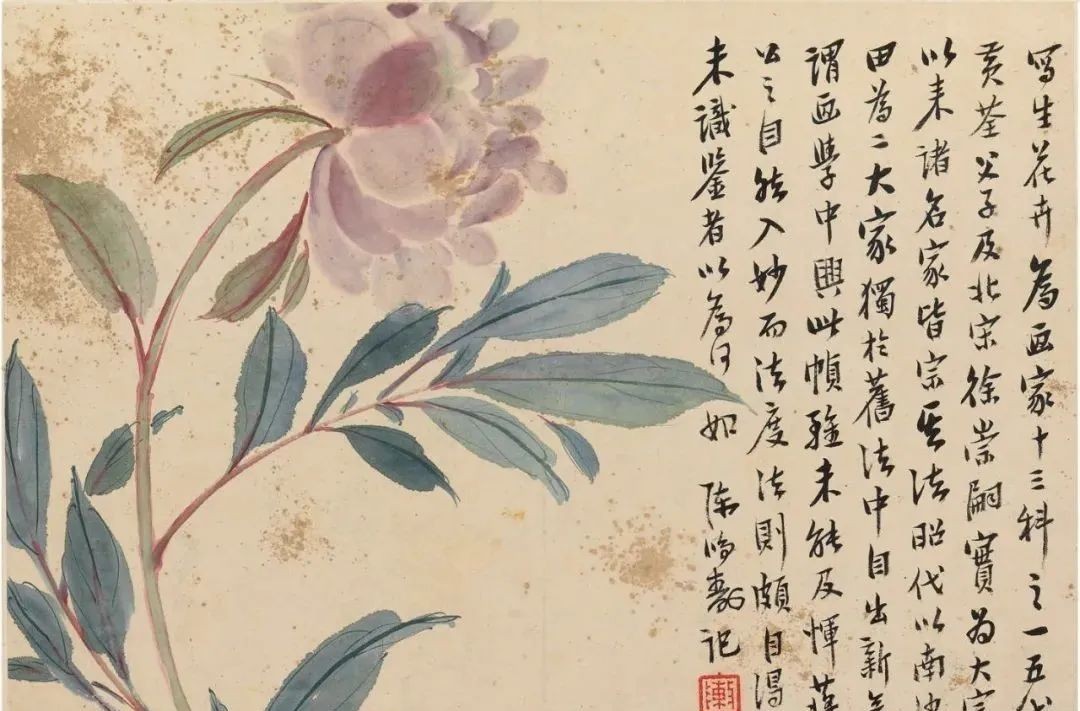 寫生花卉為画家十三科之一五代
黄荃父子及北宋徐崇嗣實為大宗
以来諸名家皆宗其法昭代以南沙
田為二大家獨於舊法中自出新
謂画學中興此幀雖未能及惲蔣
公之自然入妙而法度法則頗自得
未識鑒者以為何如 陳鴻壽記